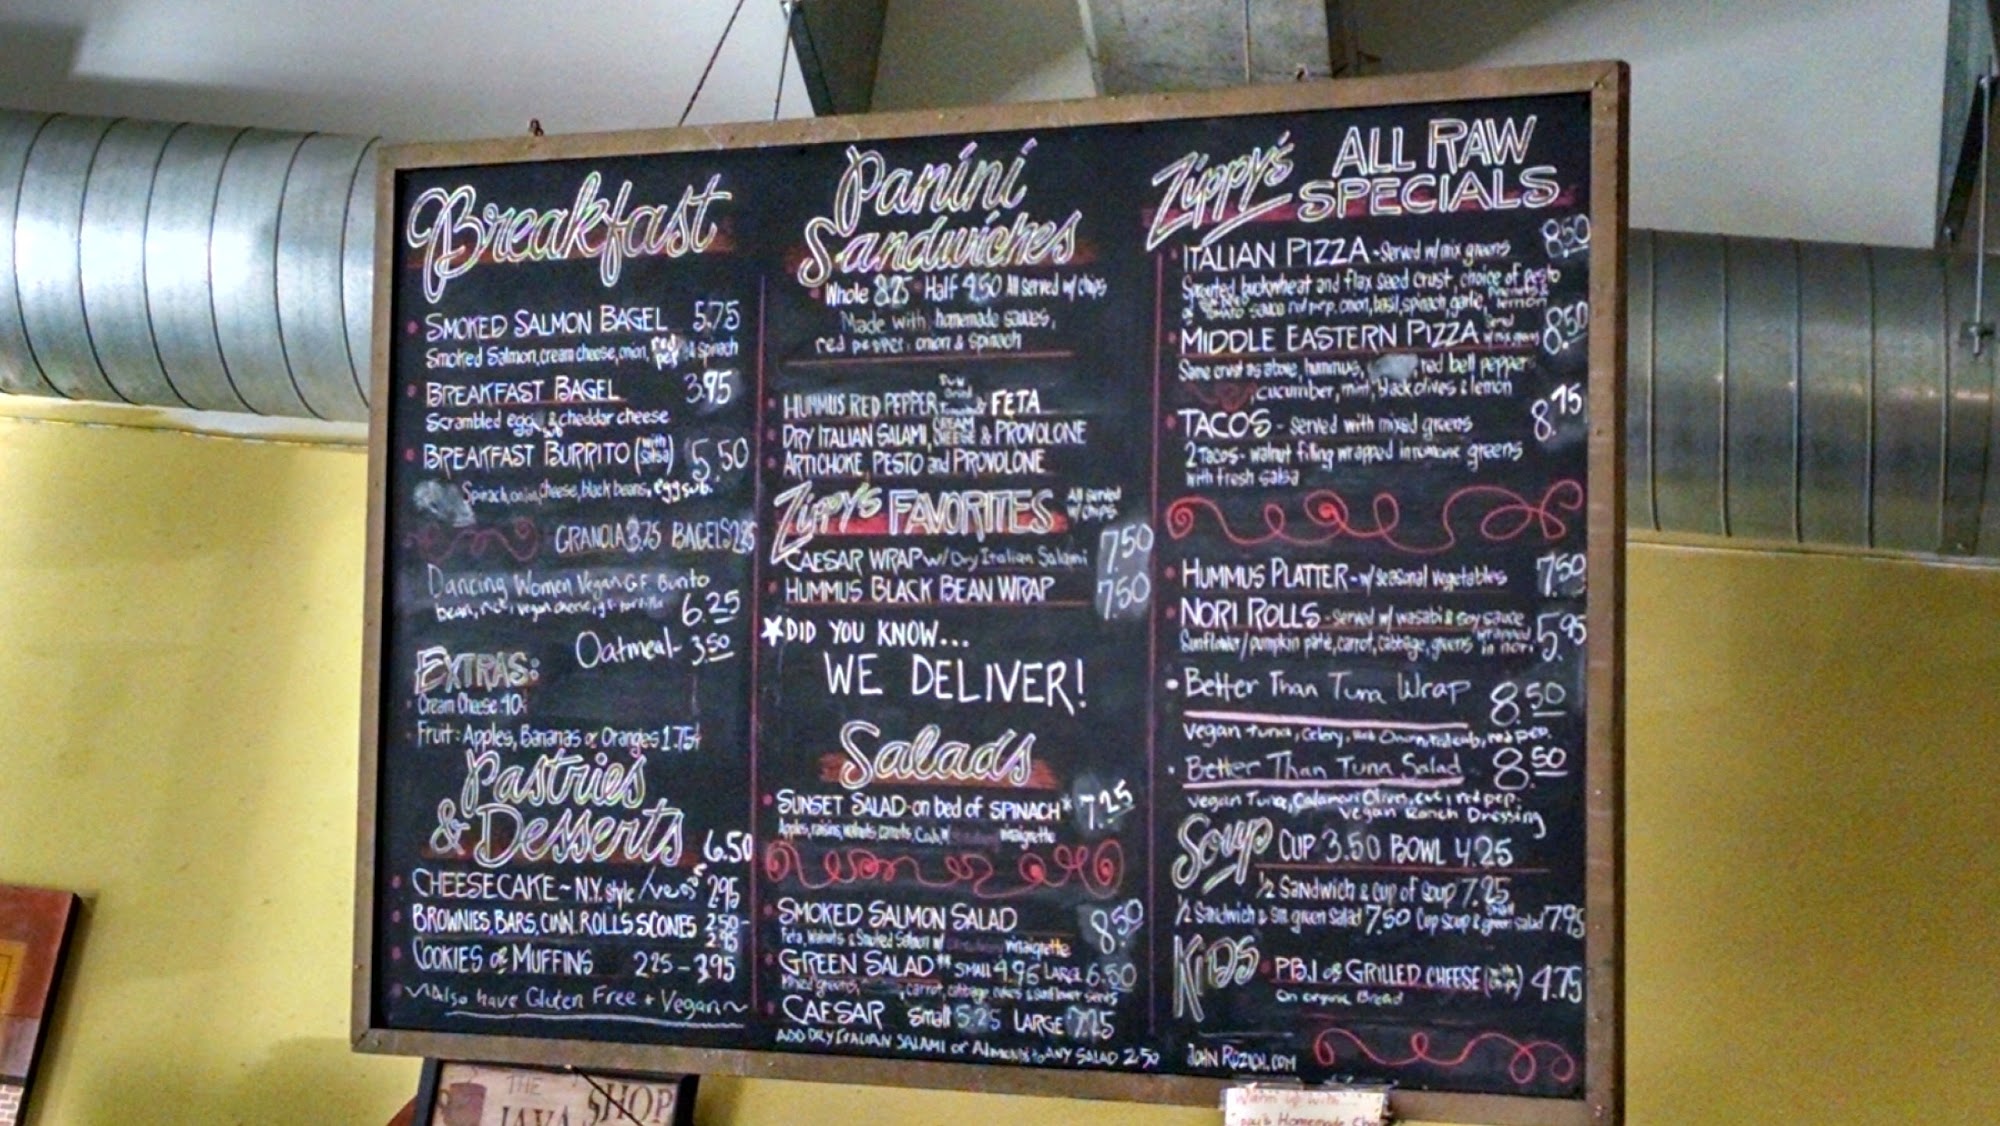 Breakfast
SMOKED SALMON BAGEL 5.75
Smoked Salmon, cream cheese, onion, red pep & spinach
BREAKFAST BAGEL 3.95
Scrambled egg & cheddar cheese
BREAKFAST BURRITO (with salsa) 5.50
Spinach, onion, cheese, black beans, egg sub.
GRANOLA 3.75 BAGELS 2.25
Dancing Women Vegan G.F. Burito
bean, rice, vegan cheese, g.f. tortilla 6.25
Oatmeal - 3.50
EXTRAS:
Cream Cheese
Fruit: Apples, Bananas or Oranges 1.75
Pastries
& Desserts 6.50
CHEESECAKE ~ N.Y. style /vegan 2.95
BROWNIES, BARS, CINN. ROLLS SCONES 2.50-
2.95
COOKIES or MUFFINS 2.25 - 3.95
~Also have Gluten Free + Vegan~
Panini
Sandwiches
Whole 8.25 Half 4.50 All served w/ chips
Made with homemade sauces,
red pepper, onion & spinach
HUMMUS RED PEPPER & FETA
DRY ITALIAN SALAMI, CREAM CHEESE & PROVOLONE
ARTICHOKE, PESTO and PROVOLONE
Zippy's FAVORITES All served w/ chips
CAESAR WRAP w/ Dry Italian Salami 7.50
HUMMUS BLACK BEAN WRAP 7.50
DID YOU KNOW...
WE DELIVER!
Salads
SUNSET SALAD - on bed of SPINACH* 7.25
Apples, raisins, walnuts, carrots vinaigrette
SMOKED SALMON SALAD 8.50
Feta, Walnuts & Smoked Salmon w/ vinaigrette
GREEN SALAD** SMALL 4.95 LARGE 6.50
Mixed greens, carrot, cabbage, & sunflower seeds
CAESAR Small 5.25 LARGE 7.25
ADD DRY ITALIAN SALAMI or Almonds to ANY SALAD 2.50
Zippy's ALL RAW
SPECIALS
ITALIAN PIZZA - Served w/ mix greens 8.50
Sprouted buckwheat and flax seed crust, choice of pesto
or tomato sauce red pep, onion, basil, spinach, garlic, lemon
MIDDLE EASTERN PIZZA 8.50
Same crust as above, hummus, red bell pepper
, cucumber, mint, black olives & lemon
TACOS - served with mixed greens 8.75
2 Tacos - walnut filling wrapped in romaine greens
with fresh salsa
HUMMUS PLATTER - w/ seasonal vegetables 7.50
NORI ROLLS - served w/ wasabi & soy sauce 5.95
Sunflower/pumpkin paté, carrot, cabbage, greens wrapped in nori
Better Than Tuna Wrap 8.50
Vegan tuna, Celery, Red Onion, red cab, red pep.
Better Than Tuna Salad 8.50
Vegan Tuna, Calamari Olives, cuc, red pep.
Vegan Ranch Dressing
Soup CUP 3.50 BOWL 4.25
1/2 Sandwich & Cup of Soup 7.25
1/2 Sandwich & sm. green Salad 7.50 Cup Soup & small green salad 7.95
KIDS PB.J or GRILLED CHEESE (with chips) 4.75
On organic Bread
JOHN ROZICH.COM
THE
JAVA SHOP
Warm up with
Homemade